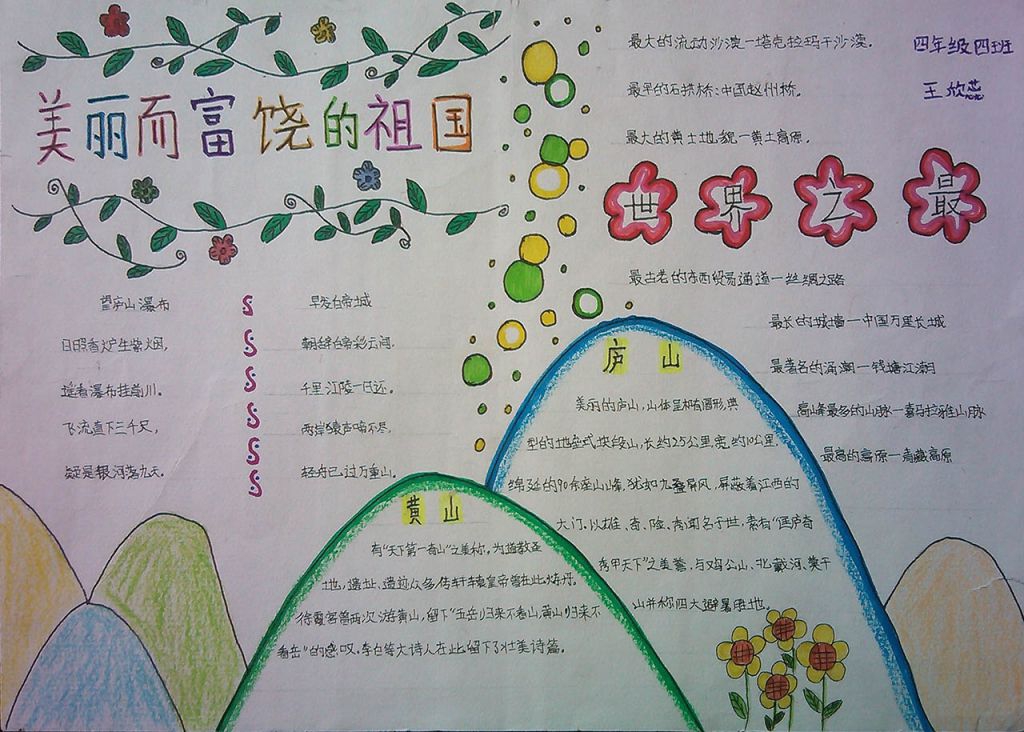 美丽而富饶的祖国
望庐山瀑布
日照香炉生紫烟,
遥看瀑布挂前川。
飞流直下三千尺,
疑是银河落九天。
早发白帝城
朝辞白帝彩云间。
千里江陵一日还。
两岸猿声啼不尽
轻舟已过万重山。
最大的流动沙漠—塔克拉玛干沙漠。
最早的石拱桥:中国赵州桥。
最大的黄土地貌—黄土高原。
四年级四班
王欣蕊
世界之最
最古老的东西贸易通道—丝绸之路
最长的城墙—中国万里长城
最著名的涌潮—钱塘江潮
高山峰最多的山脉—喜马拉雅山脉
最高的高原—青藏高原
庐山
美丽的庐山,山体呈椭圆形,典
型的地垒式块段山,长约25公里,宽约10公里,
绵延的90余座山峰,犹如九叠屏风,屏蔽着江西的
大门,以雄、奇、险、秀闻名于世,素有“匡庐奇
秀甲天下”之美誉,与鸡公山、北戴河、莫干
山并称四大避暑胜地。
黄山
有“天下第一奇山”之美称,为道教圣
地,遗址、遗迹众多,传轩辕皇帝曾在此炼丹。
徐霞客曾两次游黄山,留下“五岳归来不看山,黄山归来不
看岳”的感叹。李白等大诗人在此留下了壮美诗篇。